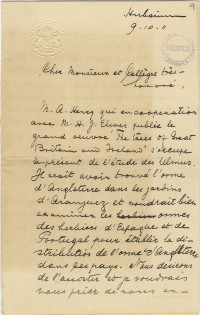 9
9.10.
Cher Monsieur et Collègue très-
honoré,
M. A. Henry qui en coopération
avec M. H. J. Elwes publie le
grand oeuvre "The trees of Great
Britain and Ireland" s'occupe
à présent de l'étude des Ulmus.
Il croit avoir trouvé l'orme
d'Angleterre dans les jardins
d'Aranjuez et voudrait bien
examiner les ormes
des herbiers d'Espagne et de
Portugal pour établir la di-
stribution de l'orme d'Angleterre
dans les pays. Nous
de l'aider et je voudrais
vous prier de nous en-